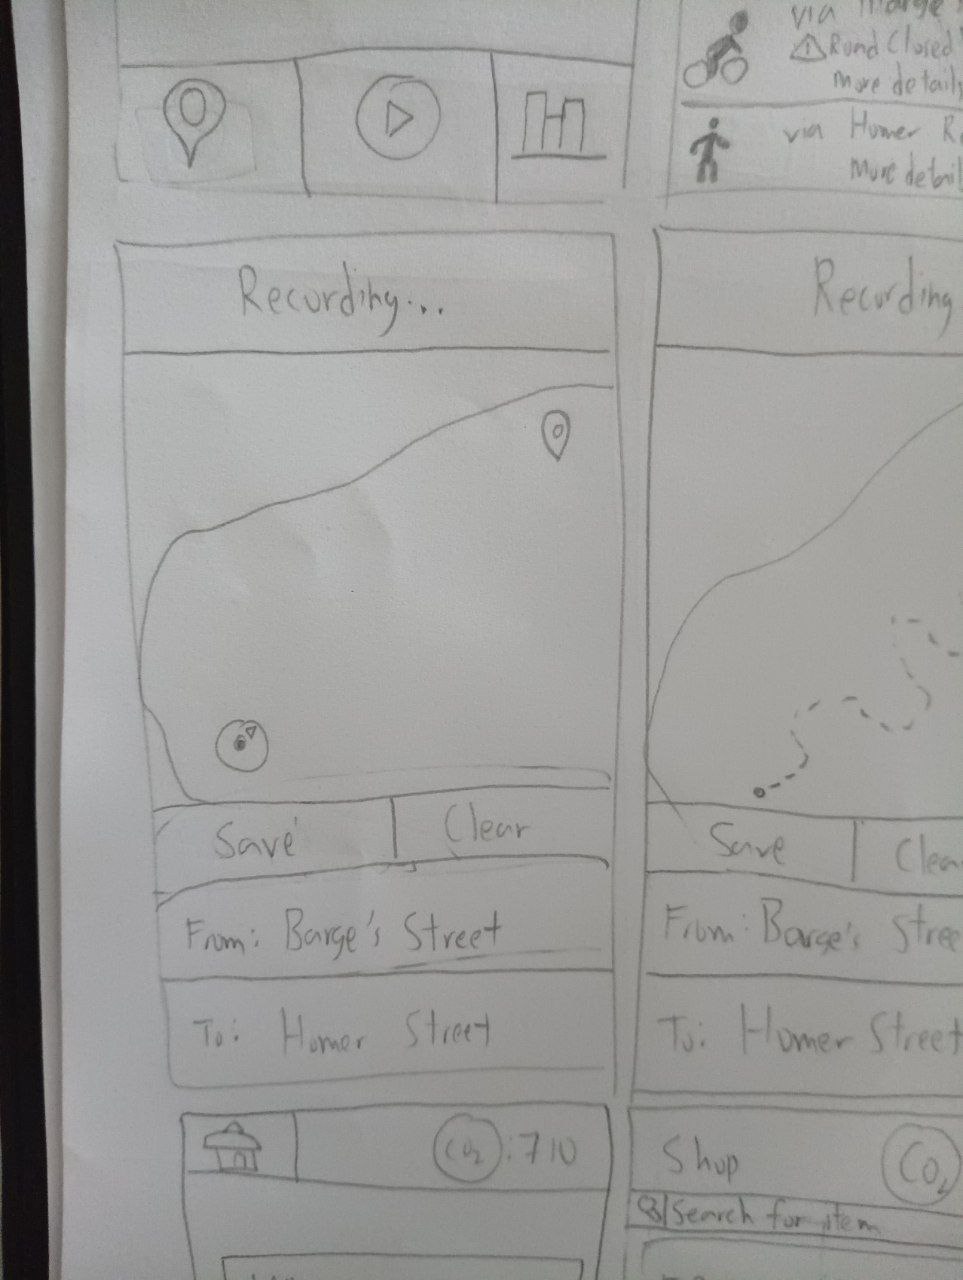 via Marge
⚠ Road Closed
More details
via Homer R
More detail
Recording...
Save
Clear
From: Barge's Street
To: Homer Street
Recording
Save
Clea
From: Barge's Stree
To: Homer Street
CO₂: 710
Shop
CO₂
Search for item